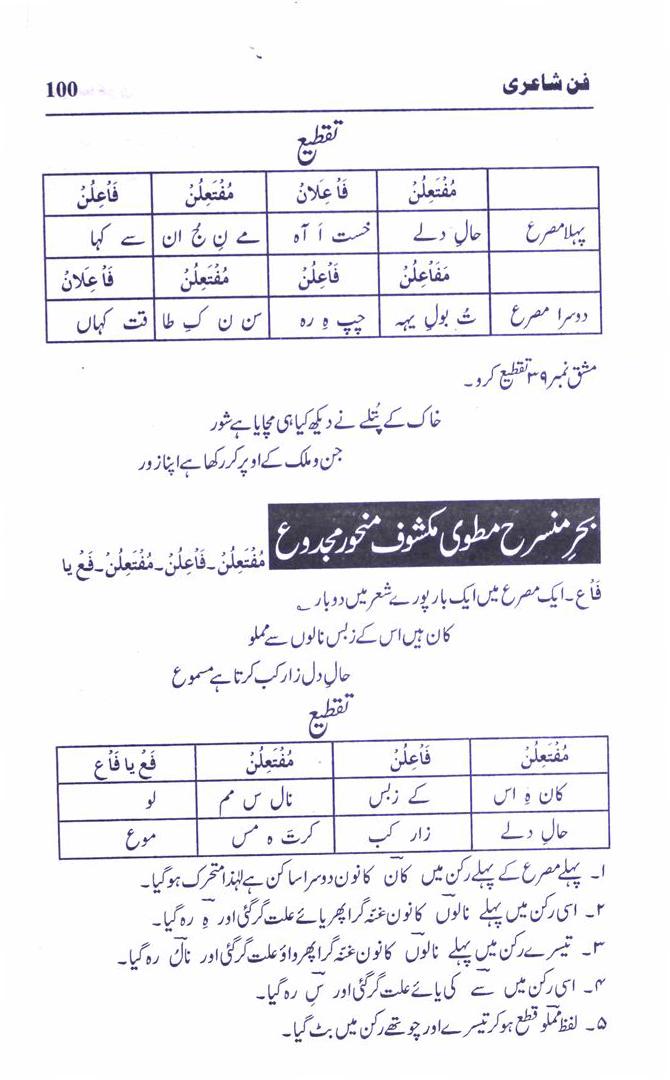 فن شاعری 100
تقطیع
مُفْتَعِلُنْ فَاْعِلَانْ مُفْتَعِلُنْ فَاْعِلُنْ
پہلا مصرع حالِ دلے خست اَ آہ مے نِ جُ ان سے کہا
مَفَاْعِلُنْ فَاْعِلُنْ مُفْتَعِلُنْ فَاْعِلَانْ
دوسرا مصرع تُ بولِ یہہ چپ ہِ رہ سن نَ کِ طا قت کہاں
مشق نمبر ۳۹ تقطیع کرو۔
خاک کے پُتلے نے دیکھ کیا ہی مچایا ہے شور
جن و ملک کے اوپر کر رکھا ہے اپنا زور
بحرِ منسرح مطوی مکشوف منحور مجدوع مُفْتَعِلُنْ۔فَاْعِلُنْ۔مُفْتَعِلُنْ۔فَعْ یا
فَاْع۔ایک مصرع میں ایک بار پورے شعر میں دو بار ؎
کان ہیں اس کے زبس نالوں سے مملو
حالِ دل زار کب کرتا ہے مسموع
تقطیع
مُفْتَعِلُنْ فَاْعِلُنْ مُفْتَعِلُنْ فَعْ یا فَاْع
کان ہِ اس کے زبس نال سِ مم لو
حالِ دلے زار کب کرتَ ہ مس موع
۱۔ پہلے مصرع کے پہلے رکن میں کان کا نون دوسرا ساکن ہے لہٰذا متحرک ہو گیا۔
۲۔ اسی رکن میں پہلے نالوں کا نون غنّہ گرا پھر یائے علت گر گئی اور ہِ رہ گیا۔
۳۔ تیسرے رکن میں پہلے نالوں کا نون غنّہ گرا پھر واؤ علت گر گئی اور نال رہ گیا۔
۴۔ اسی رکن میں سے کی یائے علت گر گئی اور سِ رہ گیا۔
۵۔ لفظ مملو قطع ہو کر تیسرے اور چوتھے رکن میں بٹ گیا۔